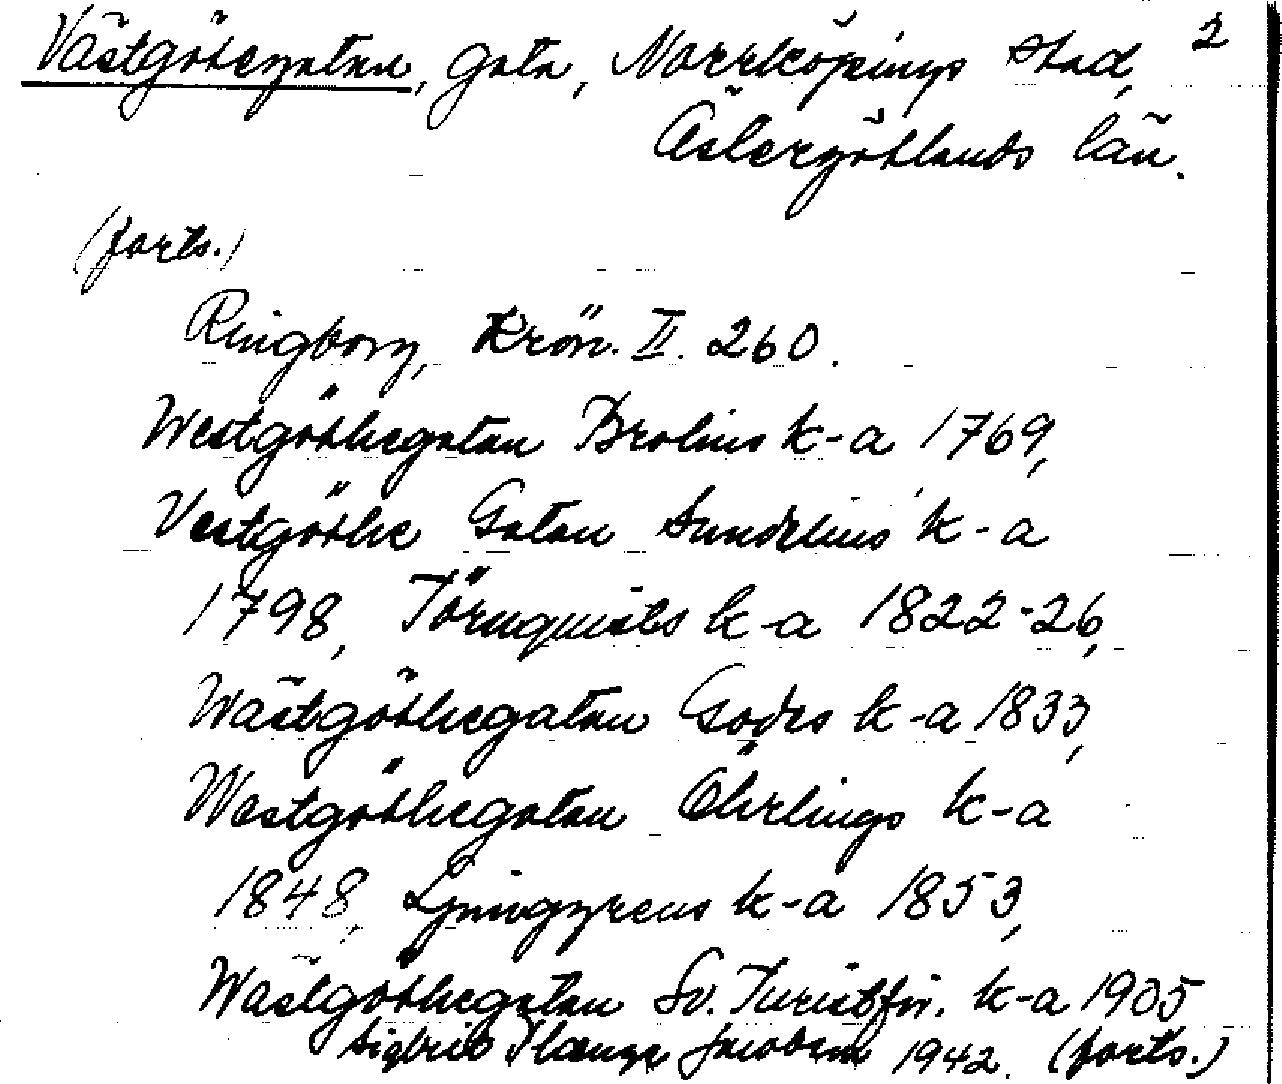 Västgötegatan, gata, Norrköpings stad, 2
Östergötlands län.
(forts.)
Ringborg, Krön. II. 260.
Westgöthegatan Brolins k-a 1769,
Vestgöthe Gatan Sundelius' k-a
1798, Törnquists k-a 1822-26,
Wästgöthegatan Godes k-a 1833,
Westgöthegatan Öhrlings k-a
1848, Ljunggrens k-a 1853,
Wästgöthegatan Sv. Turistför. k-a 1905
Sigbrit Plænge Jacobson 1942. (forts.)